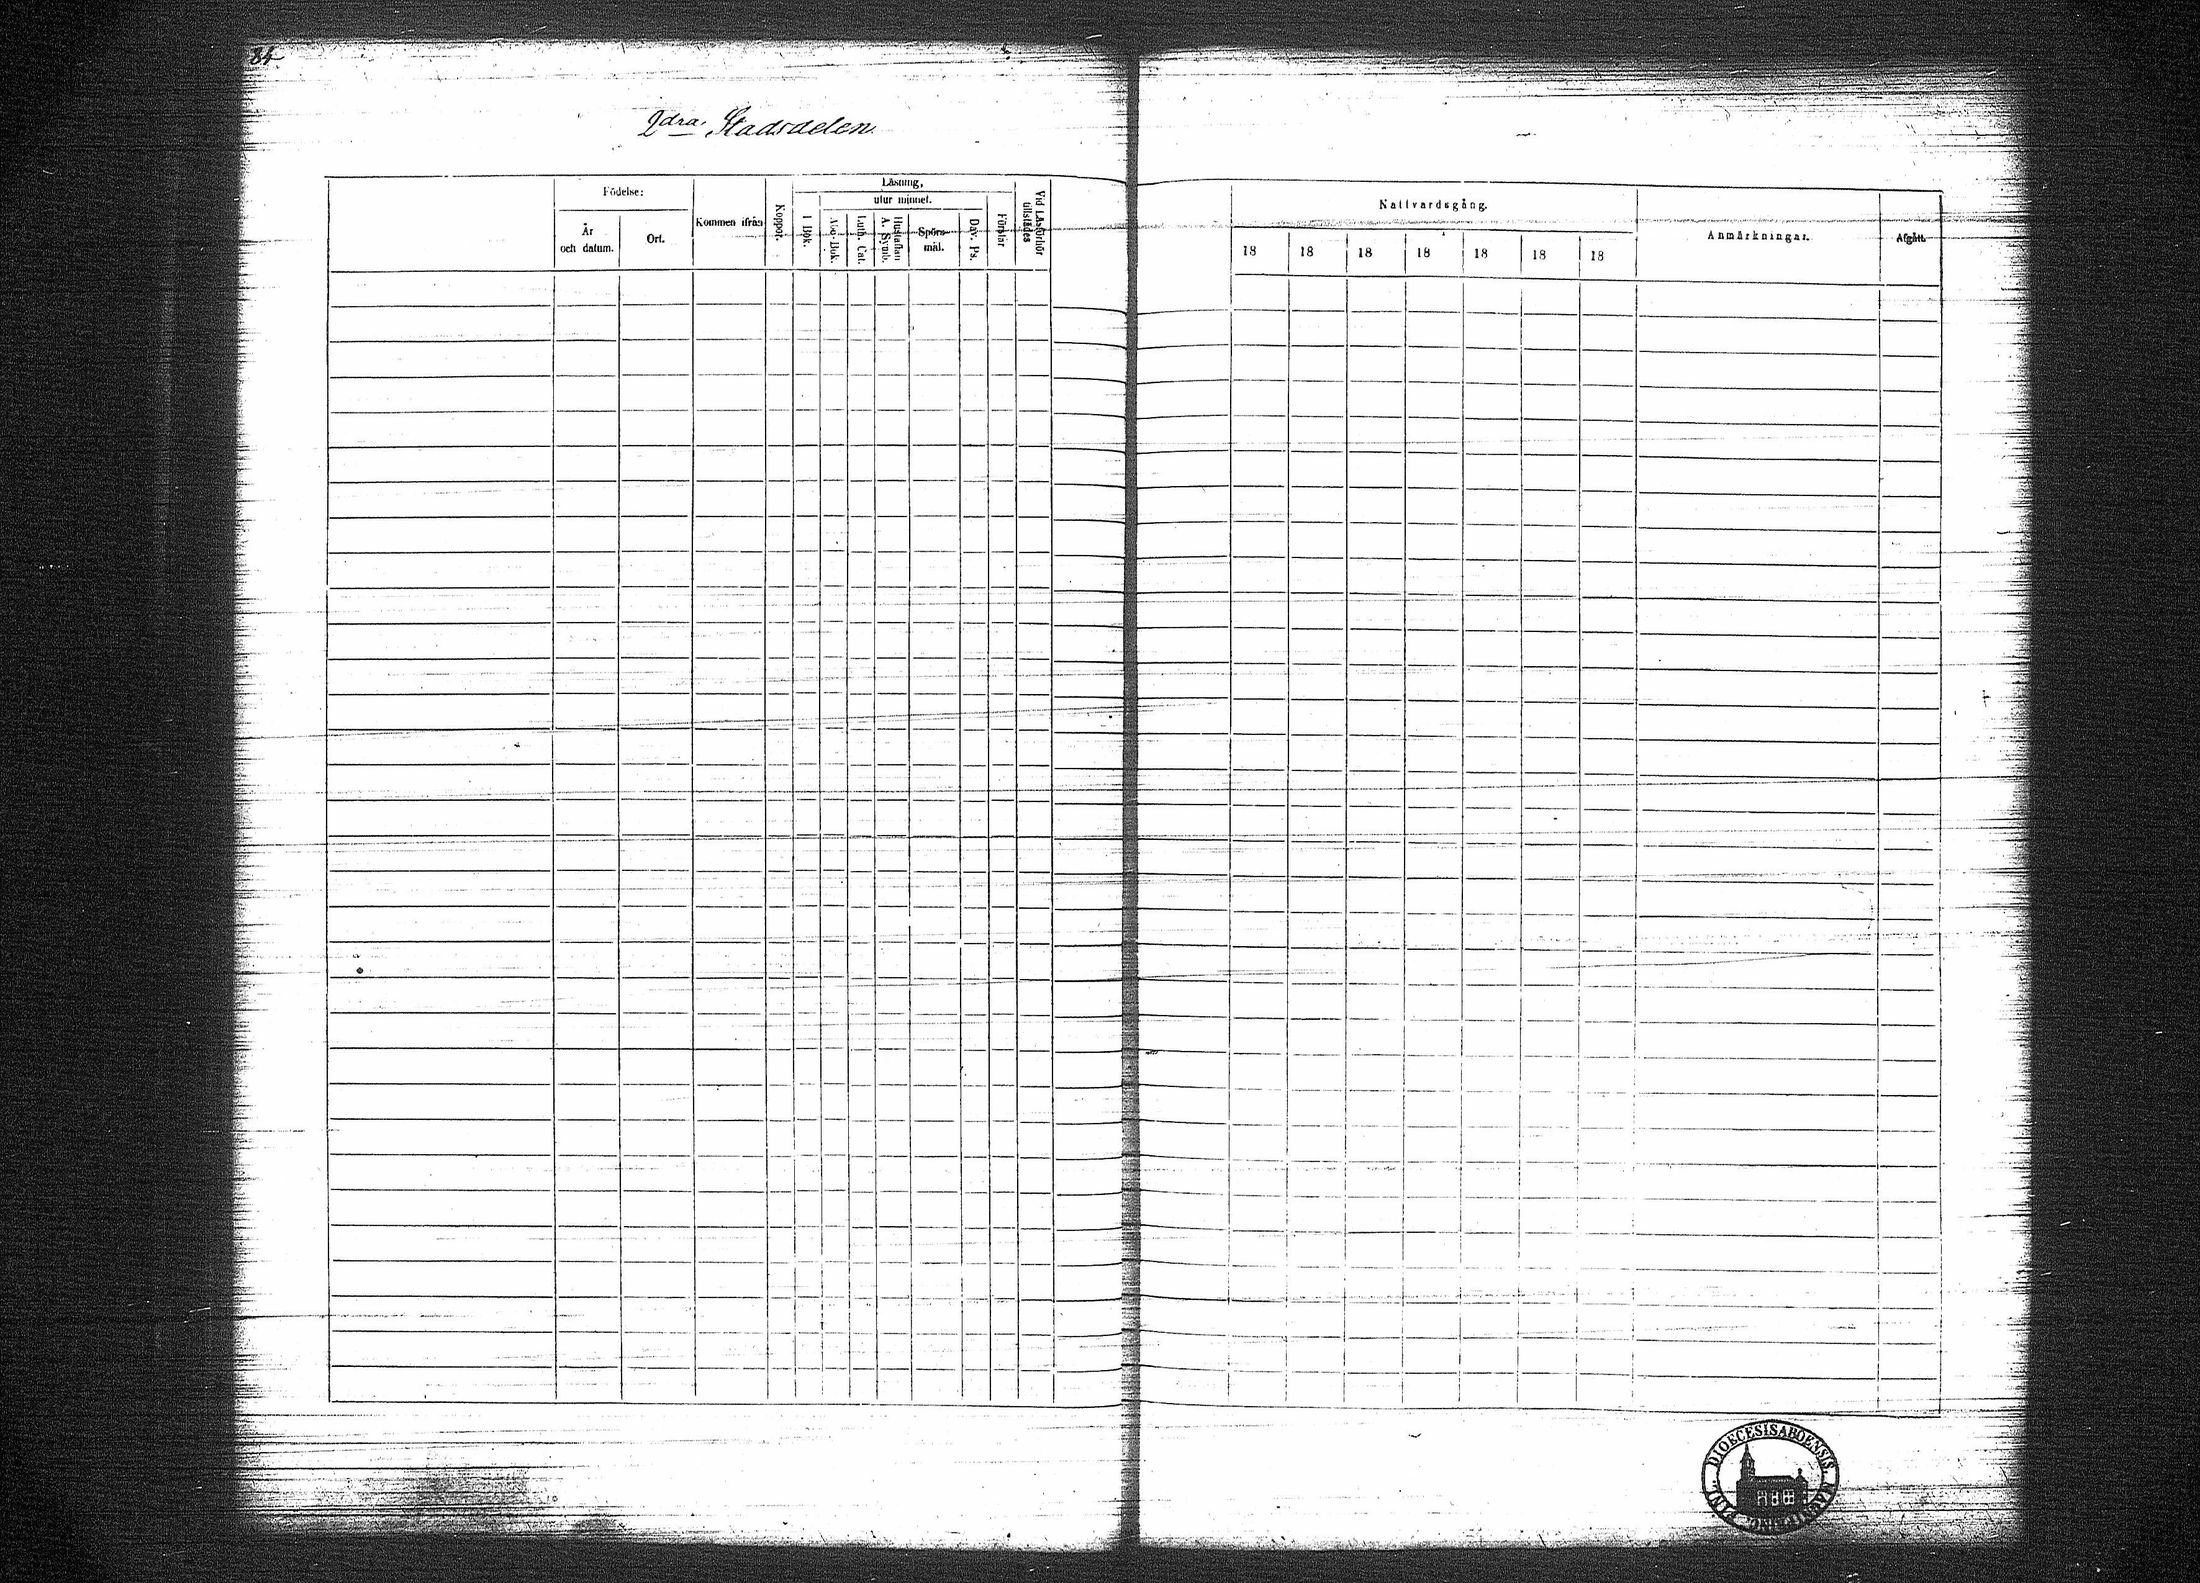 84
2dra Stadsdelen
Födelse:
År
och datum.
Ort.
Kommen ifrån
Koppor.
Läsning,
utur minnet.
I Bok.
Abc-Bok.
Luth. Cat.
Hustaflan
A. Symb.
Spörs-
mål.
Dav. Ps.
Förstår
Vid Läsförhör
tillstädes
Nattvardsgång.
18 18 18 18 18 18 18
Anmärkningar.
Afgått.
DIOECESIS ABOENSIS